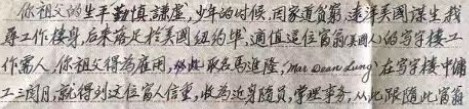 你祖父的生平勤慎謙虛,少年的时候,因家道貧窮,遠洋美國謀生找
尋工作棲身,后来落足於美國紐約埠,適值這位富翁(美國人)的写字樓工
作需人,你祖父得為雇用,取名馬進隆,(Mar Dean Lung)在写字樓中傭
工三闭月,就得到这位富人信重,收為近身隨員,常理事务,从此跟隨此富翁